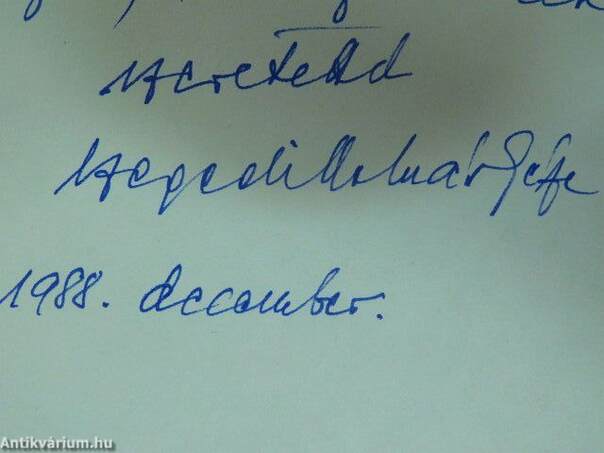 szeretettel
Szegedi Molnár Géza
1988. december.
Antikvárium.hu